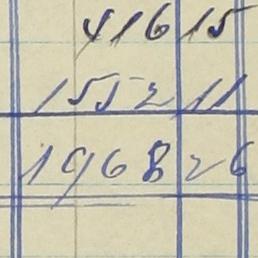 41615
155211
196826